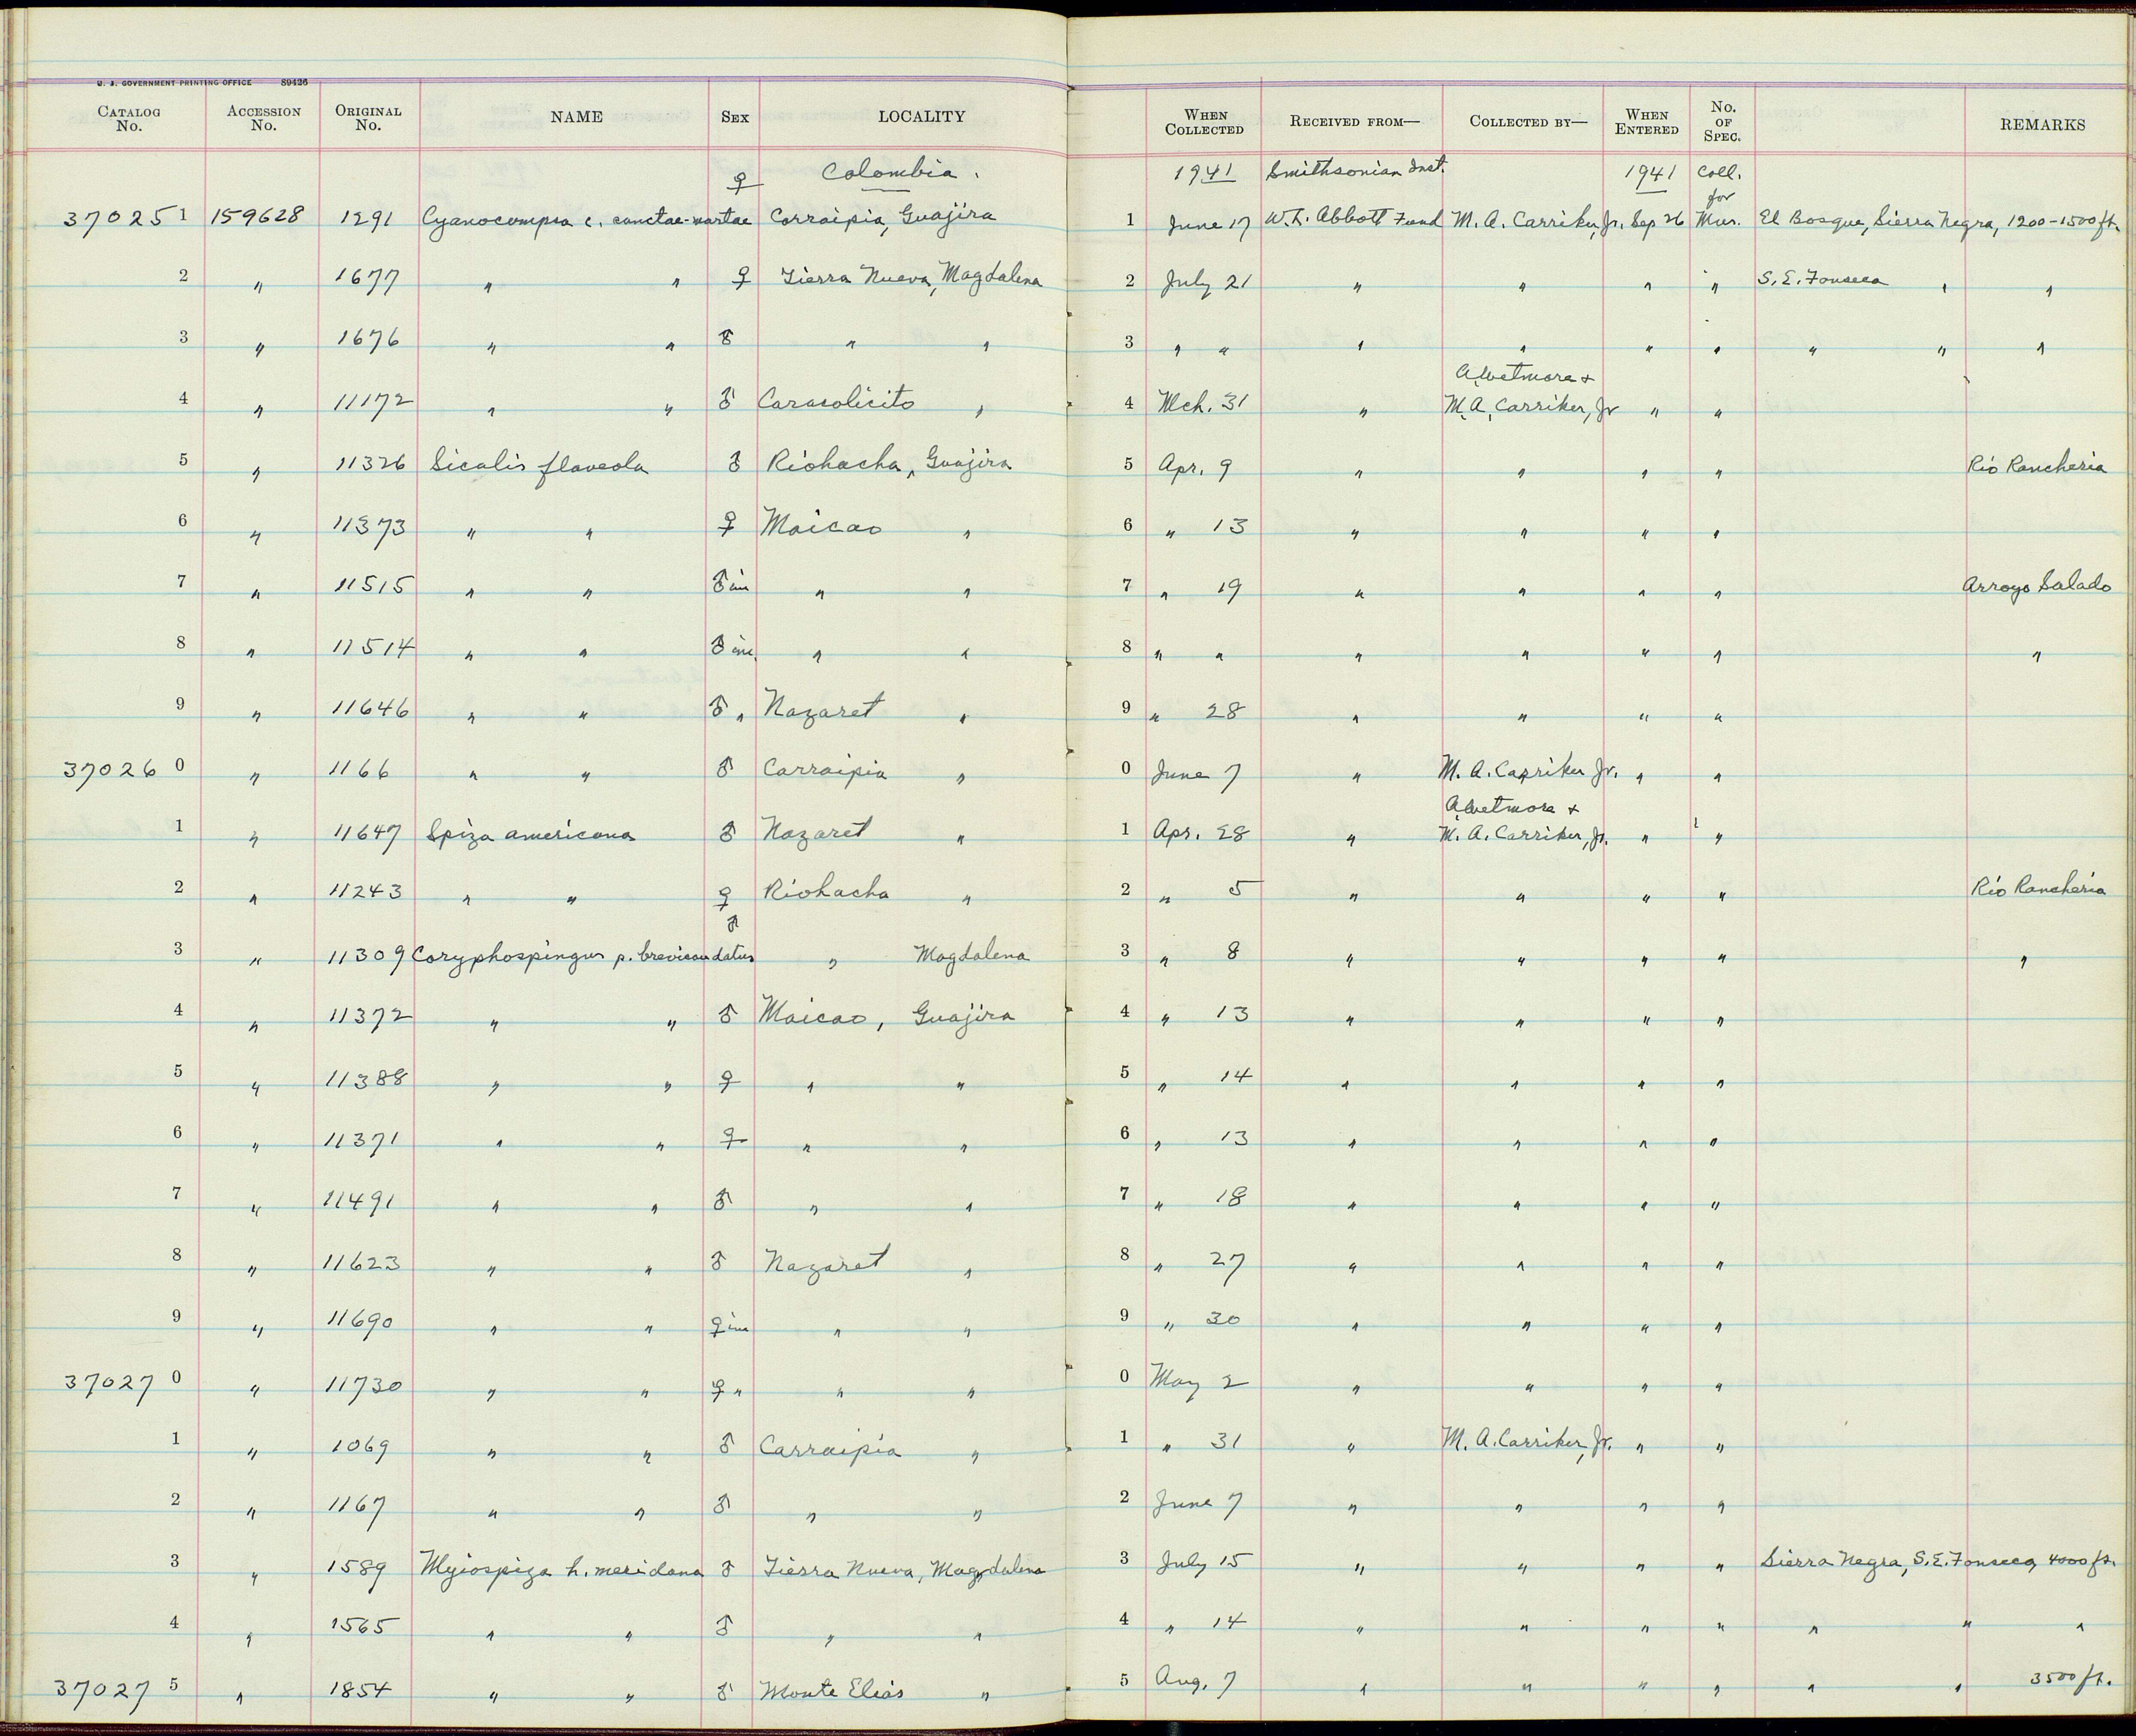 U. S. GOVERNMENT PRINTING OFFICE 89426
CATALOG No. ACCESSION No. ORIGINAL No. NAME SEX LOCALITY WHEN COLLECTED RECEIVED FROM— COLLECTED BY— WHEN ENTERED No. OF SPEC. REMARKS
♀ Colombia. 1941 Smithsonian Inst. 1941 Coll. for
37025 1 159628 1291 Cyanocompsa c. sanctae-martae Carraipia, Guajira 1 June 17 W. L. Abbott Fund M. A. Carriker, Jr. Sep 26 Mus. El Bosque, Sierra Negra, 1200-1500 ft.
2 " 1677 " " ♀ Tierra Nueva, Magdalena 2 July 21 " " " " S. E. Fonseca " "
3 " 1676 " " ♂ " " 3 " " " " " " " " "
A. Wetmore +
4 " 11172 " " ♂ Caracolicito " 4 Mch. 31 " M. A. Carriker, Jr " "
5 " 11326 Sicalis flaveola ♂ Riohacha, Guajira 5 Apr. 9 " " " " Rio Rancheria
6 " 11373 " " ♀ Maicao " 6 " 13 " " " "
7 " 11515 " " ♂ im " " 7 " 19 " " " " Arroyo Salado
8 " 11514 " " ♂ im. " " 8 " " " " " " "
9 " 11646 " " ♂ " Nazaret " 9 " 28 " " " "
37026 0 " 1166 " " ♂ Carraipia " 0 June 7 " M. A. Carriker Jr. " "
A. Wetmore +
1 " 11647 Spiza americana ♂ Nazaret " 1 Apr. 28 " M. A. Carriker, Jr. " "
2 " 11243 " " ♀ Riohacha " 2 " 5 " " " " Rio Rancheria
3 " 11309 Coryphospingus p. brevicaudatus ♂ " Magdalena 3 " 8 " " " " "
4 " 11372 " " ♂ Maicao, Guajira 4 " 13 " " " "
5 " 11388 " " ♀ " " 5 " 14 " " " "
6 " 11371 " " ♀ " " 6 " 13 " " " "
7 " 11491 " " ♂ " " 7 " 18 " " " "
8 " 11623 " " ♂ Nazaret " 8 " 27 " " " "
9 " 11690 " " ♀ im " " 9 " 30 " " " "
37027 0 " 11730 " " ♀ " " " 0 May 2 " " " "
1 " 1069 " " ♂ Carraipia " 1 " 31 " M. A. Carriker, Jr. " "
2 " 1167 " " ♂ " " 2 June 7 " " " "
3 " 1589 Myiospiza h. meridana ♂ Tierra Nueva, Magdalena 3 July 15 " " " " Sierra Negra, S. E. Fonseca, 4000 ft.
4 " 1565 " " ♂ " " 4 " 14 " " " " " " "
37027 5 " 1854 " " ♂ Monte Elias " 5 Aug. 7 " " " " " " 3500 ft.